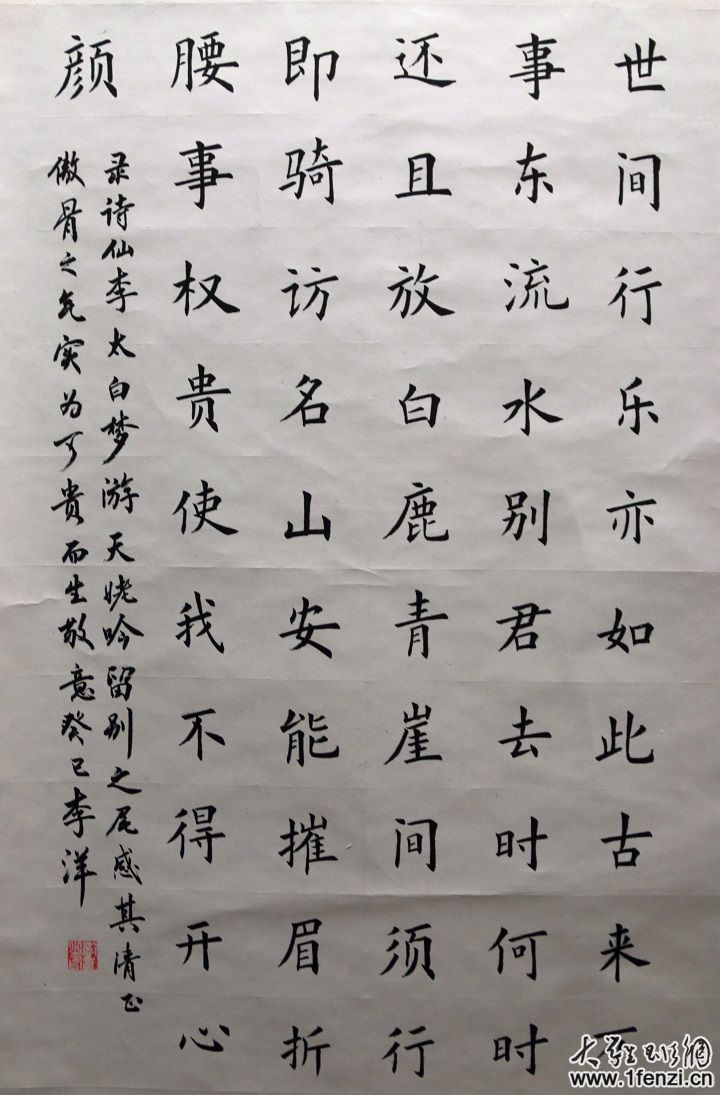 世间行乐亦如此古来万
事东流水别君去时何时
还且放白鹿青崖间须行
即骑访名山安能摧眉折
腰事权贵使我不得开心
颜
录诗仙李太白梦游天姥吟留别之尾感其清正
傲骨之气实为可贵而生敬意癸巳李洋
大学生书法网
www.1fenzi.cn